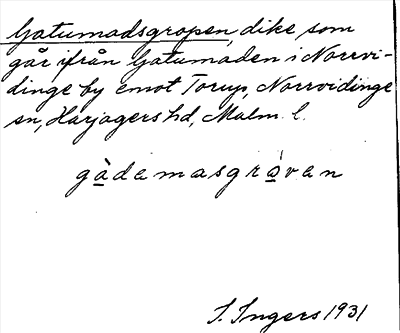 Gatumadsgropen, dike som
går ifrån Gatumaden i Norrvi-
dinge by emot Torup, Norrvidinge
sn, Harjagers hd, Malm. l.
gàdemasgrǫ̀van
I. Ingers 1931